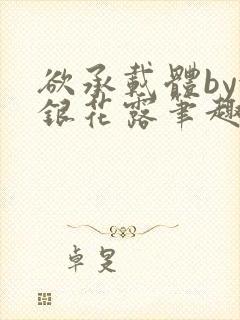 欲承载體by
銀花露筆趣
卓旻